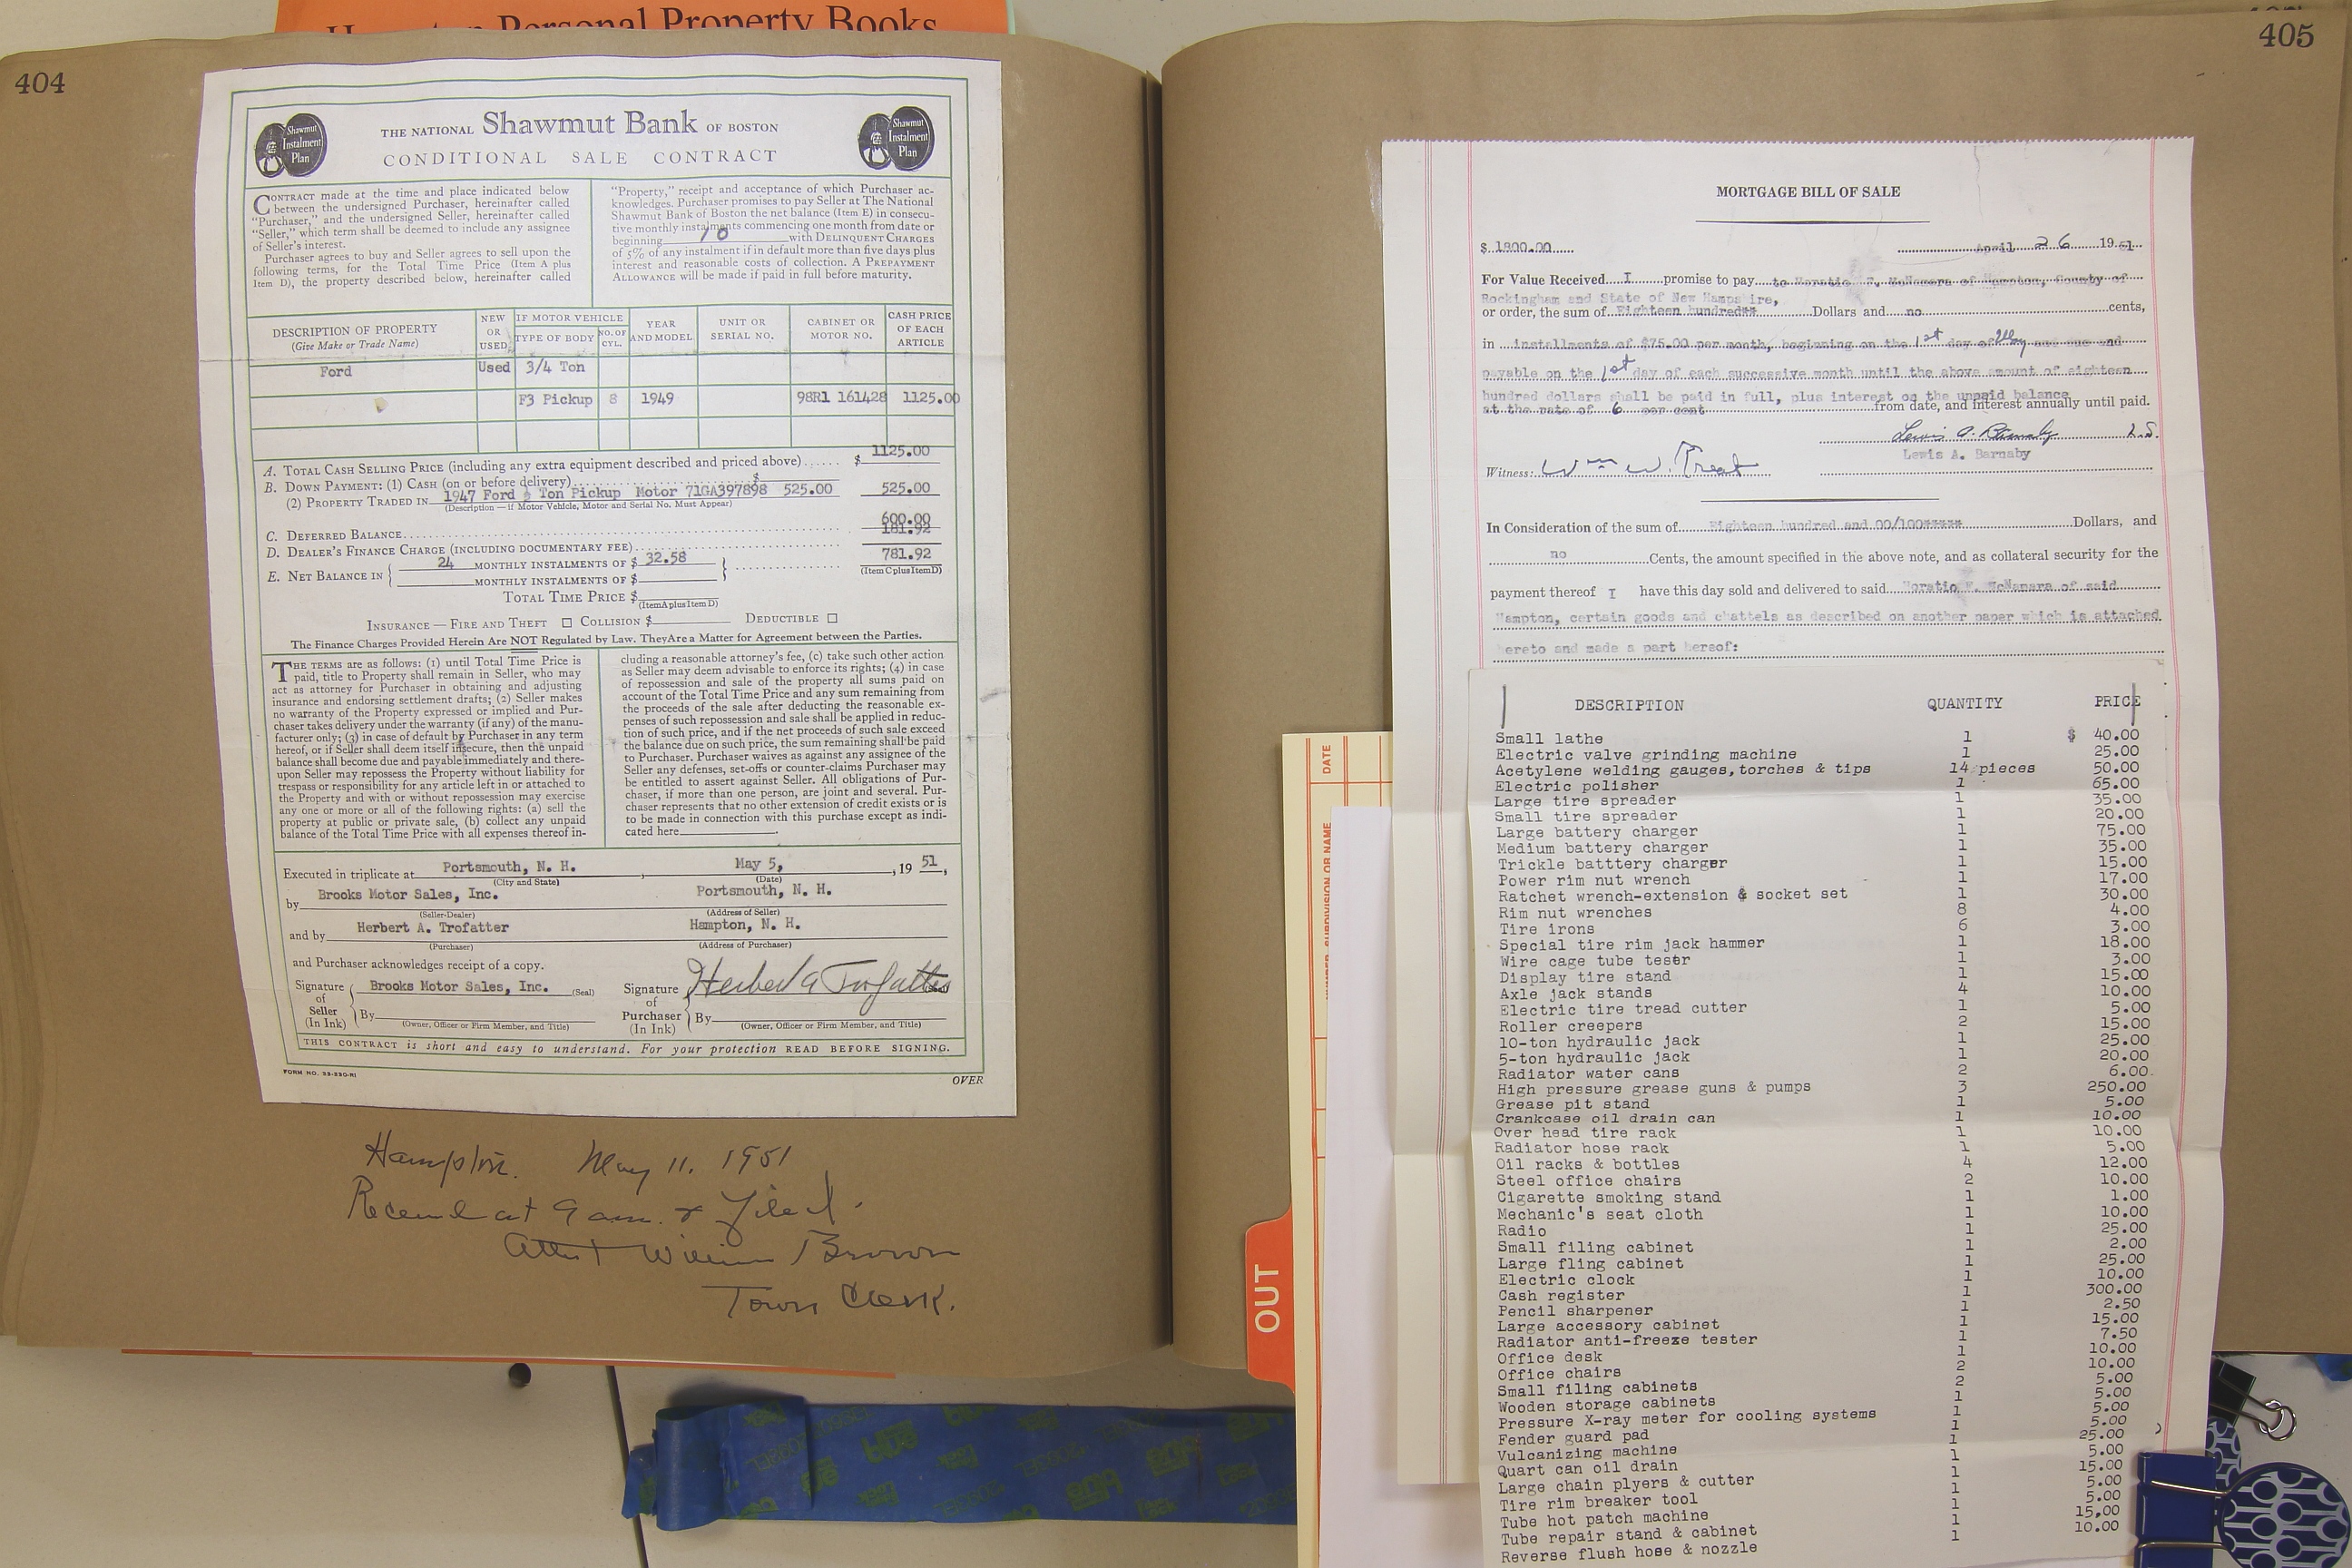 Hampton Personal Property Books
404
405
Shawmut
Instalment
Plan
THE NATIONAL Shawmut Bank OF BOSTON
CONDITIONAL SALE CONTRACT
Shawmut
Instalment
Plan
CONTRACT made at the time and place indicated below
between the undersigned Purchaser, hereinafter called
"Purchaser," and the undersigned Seller, hereinafter called
"Seller," which term shall be deemed to include any assignee
of Seller's interest.
Purchaser agrees to buy and Seller agrees to sell upon the
following terms, for the Total Time Price (Item A plus
Item D), the property described below, hereinafter called
"Property," receipt and acceptance of which Purchaser ac-
knowledges. Purchaser promises to pay Seller at The National
Shawmut Bank of Boston the net balance (Item E) in consecu-
tive monthly instalments commencing one month from date or
beginning 10 with DELINQUENT CHARGES
of 5% of any instalment if in default more than five days plus
interest and reasonable costs of collection. A PREPAYMENT
ALLOWANCE will be made if paid in full before maturity.
DESCRIPTION OF PROPERTY
(Give Make or Trade Name)
NEW OR USED
IF MOTOR VEHICLE
TYPE OF BODY
NO. OF CYL.
YEAR AND MODEL
UNIT OR SERIAL NO.
CABINET OR MOTOR NO.
CASH PRICE OF EACH ARTICLE
Ford Used 3/4 Ton
F3 Pickup 8 1949 98R1 161428 1125.00
A. TOTAL CASH SELLING PRICE (including any extra equipment described and priced above)...... $ 1125.00
B. DOWN PAYMENT: (1) CASH (on or before delivery) $
(2) PROPERTY TRADED IN 1947 Ford ½ Ton Pickup Motor 71GA397898 525.00 525.00
(Description — if Motor Vehicle, Motor and Serial No. Must Appear)
C. DEFERRED BALANCE 600.00
D. DEALER'S FINANCE CHARGE (INCLUDING DOCUMENTARY FEE) 181.92
E. NET BALANCE IN { 24 MONTHLY INSTALMENTS OF $ 32.58 781.92
MONTHLY INSTALMENTS OF $ (Item C plus Item D)
TOTAL TIME PRICE $
(Item A plus Item D)
INSURANCE — FIRE AND THEFT ☐ COLLISION $ DEDUCTIBLE ☐
The Finance Charges Provided Herein Are NOT Regulated by Law. They Are a Matter for Agreement between the Parties.
THE TERMS are as follows: (1) until Total Time Price is
paid, title to Property shall remain in Seller, who may
act as attorney for Purchaser in obtaining and adjusting
insurance and endorsing settlement drafts; (2) Seller makes
no warranty of the Property expressed or implied and Pur-
chaser takes delivery under the warranty (if any) of the manu-
facturer only; (3) in case of default by Purchaser in any term
hereof, or if Seller shall deem itself insecure, then the unpaid
balance shall become due and payable immediately and there-
upon Seller may repossess the Property without liability for
trespass or responsibility for any article left in or attached to
the Property and with or without repossession may exercise
any one or more or all of the following rights: (a) sell the
property at public or private sale, (b) collect any unpaid
balance of the Total Time Price with all expenses thereof in-
cluding a reasonable attorney's fee, (c) take such other action
as Seller may deem advisable to enforce its rights; (4) in case
of repossession and sale of the property all sums paid on
account of the Total Time Price and any sum remaining from
the proceeds of the sale after deducting the reasonable ex-
penses of such repossession and sale shall be applied in reduc-
tion of such price, and if the net proceeds of such sale exceed
the balance due on such price, the sum remaining shall be paid
to Purchaser. Purchaser waives as against any assignee of the
Seller any defenses, set-offs or counter-claims Purchaser may
be entitled to assert against Seller. All obligations of Pur-
chaser, if more than one person, are joint and several. Pur-
chaser represents that no other extension of credit exists or is
to be made in connection with this purchase except as indi-
cated here
Executed in triplicate at Portsmouth, N. H. , May 5, , 19 51,
(City and State) (Date)
by Brooks Motor Sales, Inc. Portsmouth, N. H.
(Seller-Dealer) (Address of Seller)
and by Herbert A. Trofatter Hampton, N. H.
(Purchaser) (Address of Purchaser)
and Purchaser acknowledges receipt of a copy.
Signature of Seller (In Ink) Brooks Motor Sales, Inc. (Seal)
By
(Owner, Officer or Firm Member, and Title)
Signature of Purchaser (In Ink) Herbert A Trofatter (Seal)
By
(Owner, Officer or Firm Member, and Title)
THIS CONTRACT is short and easy to understand. For your protection READ BEFORE SIGNING.
FORM NO. 33-330-R1
OVER
Hampton. May 11. 1951
Received at 9 am. & filed.
Attest William Brown
Town Clerk.
MORTGAGE BILL OF SALE
$ 1800.00 April 26 1951
For Value Received I promise to pay to Horatio F. McNamara of Hampton, County of
Rockingham and State of New Hampshire,
or order, the sum of Eighteen hundred** Dollars and no cents,
in installments of $75.00 per month, beginning on the 1st day of May and due and
payable on the 1st day of each successive month until the above amount of eighteen
hundred dollars shall be paid in full, plus interest on the unpaid balance
at the rate of 6 per cent from date, and interest annually until paid.
Lewis A. Barnaby L.S.
Lewis A. Barnaby
Witness: Wm W. Treat
In Consideration of the sum of Eighteen hundred and 00/100***** Dollars, and
no Cents, the amount specified in the above note, and as collateral security for the
payment thereof I have this day sold and delivered to said Horatio F. McNamara of said
Hampton, certain goods and chattels as described on another paper which is attached
hereto and made a part hereof:
DESCRIPTION QUANTITY PRICE
Small lathe 1 $ 40.00
Electric valve grinding machine 1 25.00
Acetylene welding gauges, torches & tips 14 pieces 50.00
Electric polisher 1 65.00
Large tire spreader 1 35.00
Small tire spreader 1 20.00
Large battery charger 1 75.00
Medium battery charger 1 35.00
Trickle batttery charger 1 15.00
Power rim nut wrench 1 17.00
Ratchet wrench-extension & socket set 1 30.00
Rim nut wrenches 8 4.00
Tire irons 6 3.00
Special tire rim jack hammer 1 18.00
Wire cage tube tester 1 3.00
Display tire stand 1 15.00
Axle jack stands 4 10.00
Electric tire tread cutter 1 5.00
Roller creepers 2 15.00
10-ton hydraulic jack 1 25.00
5-ton hydraulic jack 1 20.00
Radiator water cans 2 6.00
High pressure grease guns & pumps 3 250.00
Grease pit stand 1 5.00
Crankcase oil drain can 1 10.00
Over head tire rack 1 10.00
Radiator hose rack 1 5.00
Oil racks & bottles 4 12.00
Steel office chairs 2 10.00
Cigarette smoking stand 1 1.00
Mechanic's seat cloth 1 10.00
Radio 1 25.00
Small filing cabinet 1 2.00
Large fling cabinet 1 25.00
Electric clock 1 10.00
Cash register 1 300.00
Pencil sharpener 1 2.50
Large accessory cabinet 1 15.00
Radiator anti-freeze tester 1 7.50
Office desk 1 10.00
Office chairs 2 10.00
Small filing cabinets 2 5.00
Wooden storage cabinets 1 5.00
Pressure X-ray meter for cooling systems 1 5.00
Fender guard pad 1 5.00
Vulcanizing machine 1 25.00
Quart can oil drain 1 5.00
Large chain plyers & cutter 1 15.00
Tire rim breaker tool 1 5.00
Tube hot patch machine 1 5.00
Tube repair stand & cabinet 1 15,00
Reverse flush hose & nozzle 1 10.00
DATE
OUT